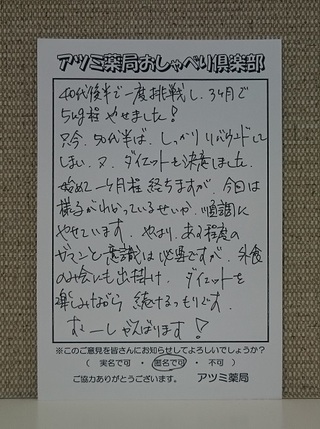 アツミ薬局おしゃべり倶楽部
40代後半で一度挑戦し、3ヶ月で
5kg程やせました!
只今、50代半ば、しっかりリバウンドして
しまい、又、ダイエットを決意しました。
始めて一ヶ月程経ちますが、今回は
様子がわかっているせいか、順調に
やせています。やはり、ある程度の
ガマンと意識は必要ですが、外食
のみ会にも出掛け、ダイエットを
楽しみながら続けるつもりです。
がんばります!
※このご意見を皆さんにお知らせしてよろしいでしょうか?
( 実名で可 ・ 匿名で可 ・ 不可 )
ご協力ありがとうございます。 アツミ薬局